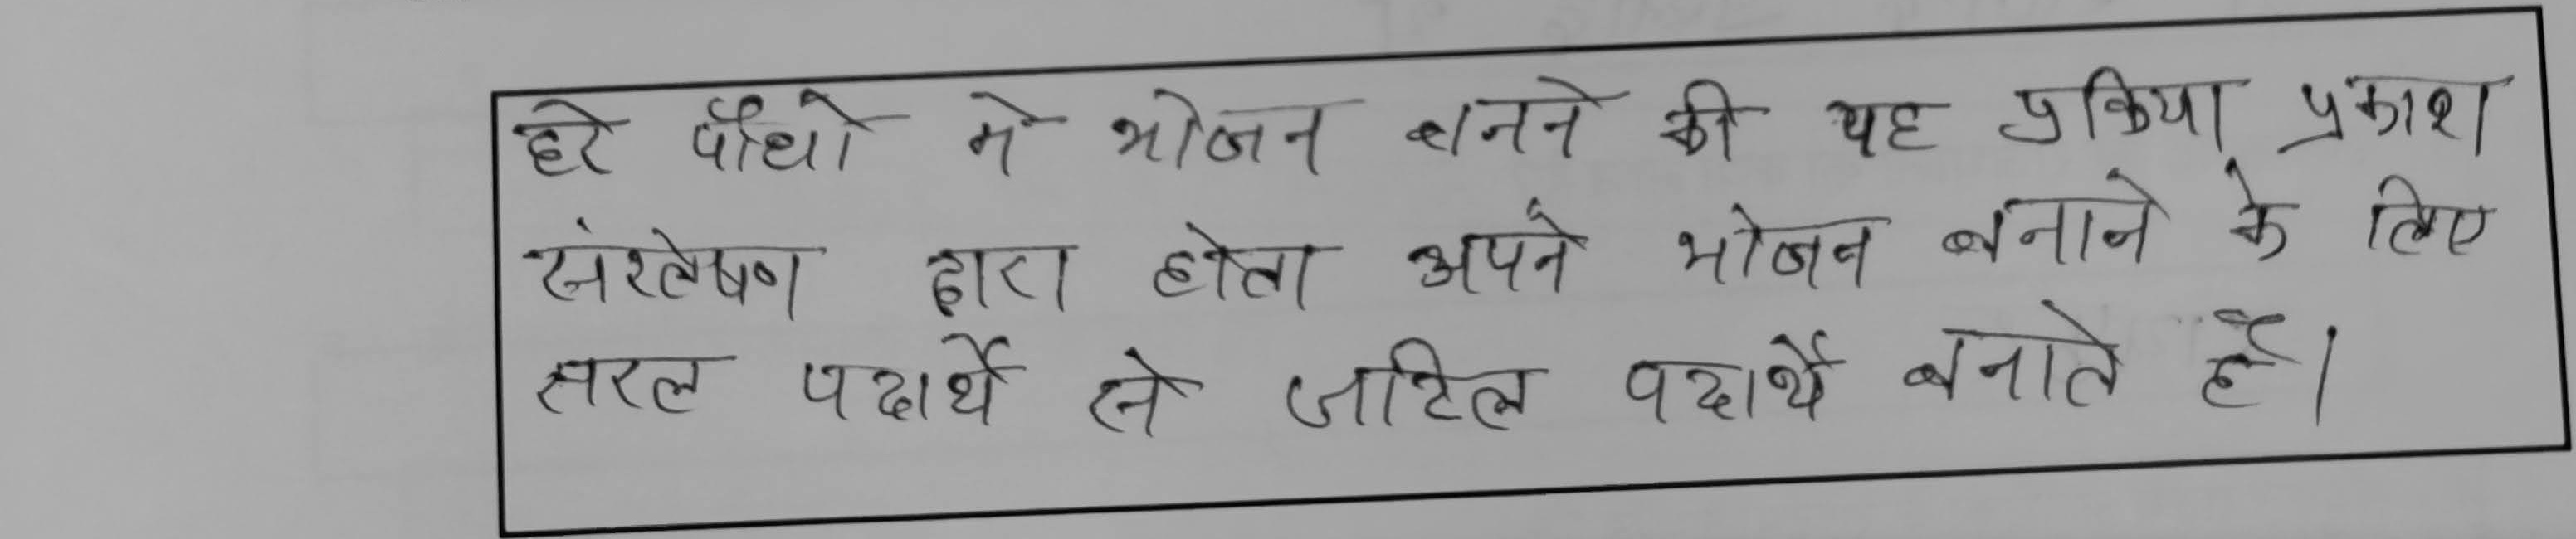 हरे पौधो मे भोजन बनने की यह प्रकिया प्रकाश
संश्लेषण द्वारा होता अपने भोजन बनाने के लिए
सरल पदार्थे से जटिल पदार्थे बनाते हैं।